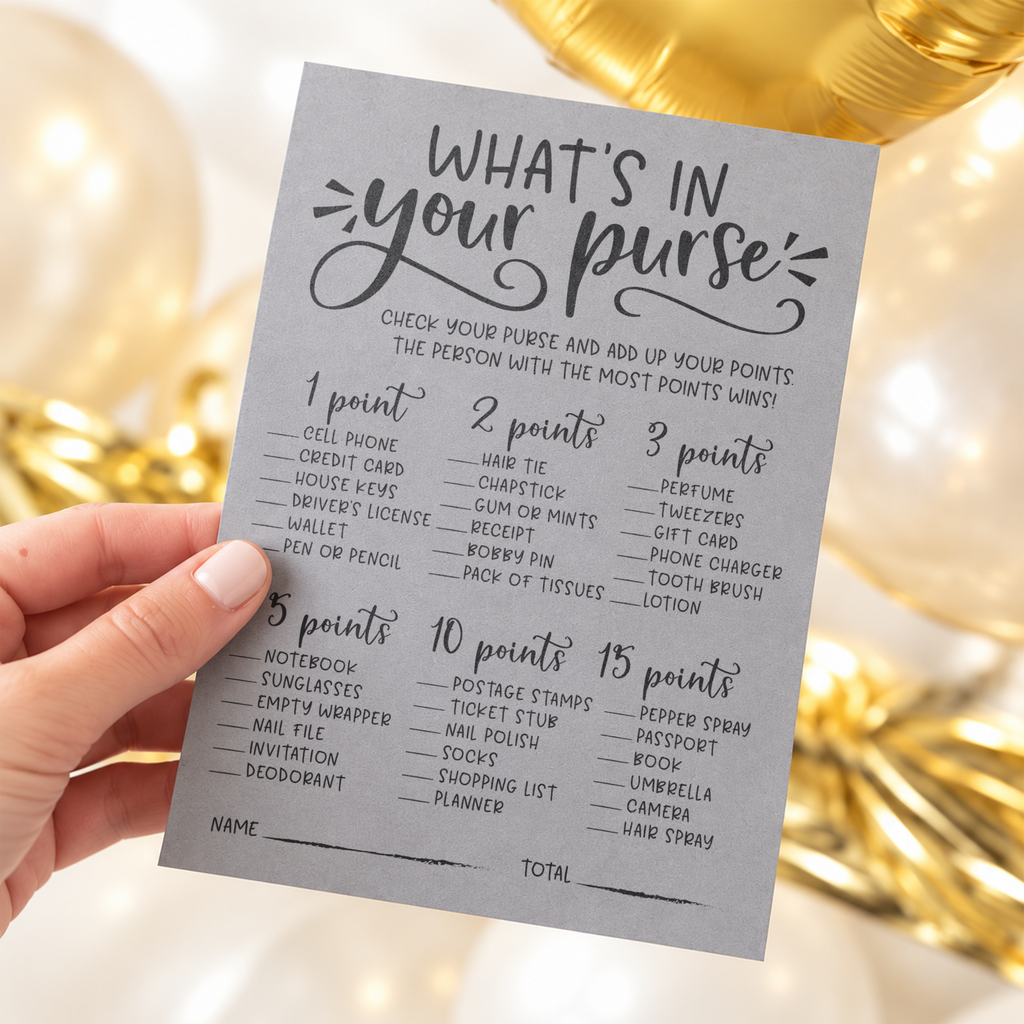 WHAT'S IN
your purse
CHECK YOUR PURSE AND ADD UP YOUR POINTS.
THE PERSON WITH THE MOST POINTS WINS!
1 point
CELL PHONE
CREDIT CARD
HOUSE KEYS
DRIVER'S LICENSE
WALLET
PEN OR PENCIL
2 points
HAIR TIE
CHAPSTICK
GUM OR MINTS
RECEIPT
BOBBY PIN
PACK OF TISSUES
3 points
PERFUME
TWEEZERS
GIFT CARD
PHONE CHARGER
TOOTH BRUSH
LOTION
5 points
NOTEBOOK
SUNGLASSES
EMPTY WRAPPER
NAIL FILE
INVITATION
DEODORANT
10 points
POSTAGE STAMPS
TICKET STUB
NAIL POLISH
SOCKS
SHOPPING LIST
PLANNER
15 points
PEPPER SPRAY
PASSPORT
BOOK
UMBRELLA
CAMERA
HAIR SPRAY
NAME
TOTAL